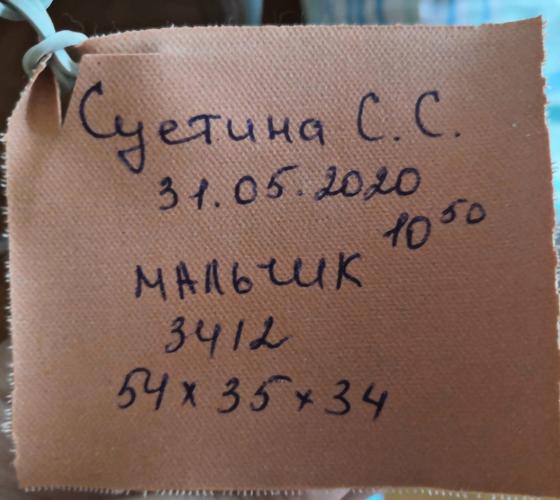 Суетина С. С.
31.05.2020
10⁵⁰
МАЛЬЧИК
3412
54 x 35 x 34